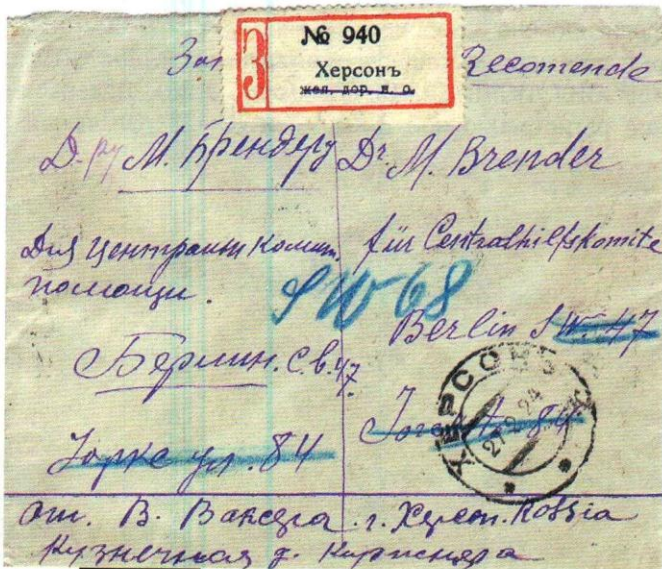 З № 940
Херсонъ
жел. дор. п. о.
Зак Recomende
Д-ру М. Брендеру
Для Централн Комит.
помощи.
Берлин. С.В. 47
Јорке ул. 84
Dr. M. Brender
für Centralhilfskomite
SW 68
Berlin SW. 47
84
ХЕРСОНЪ
27 2 24
От. В. Ваксера г. Херсон. Rossia
Кузнечная д.